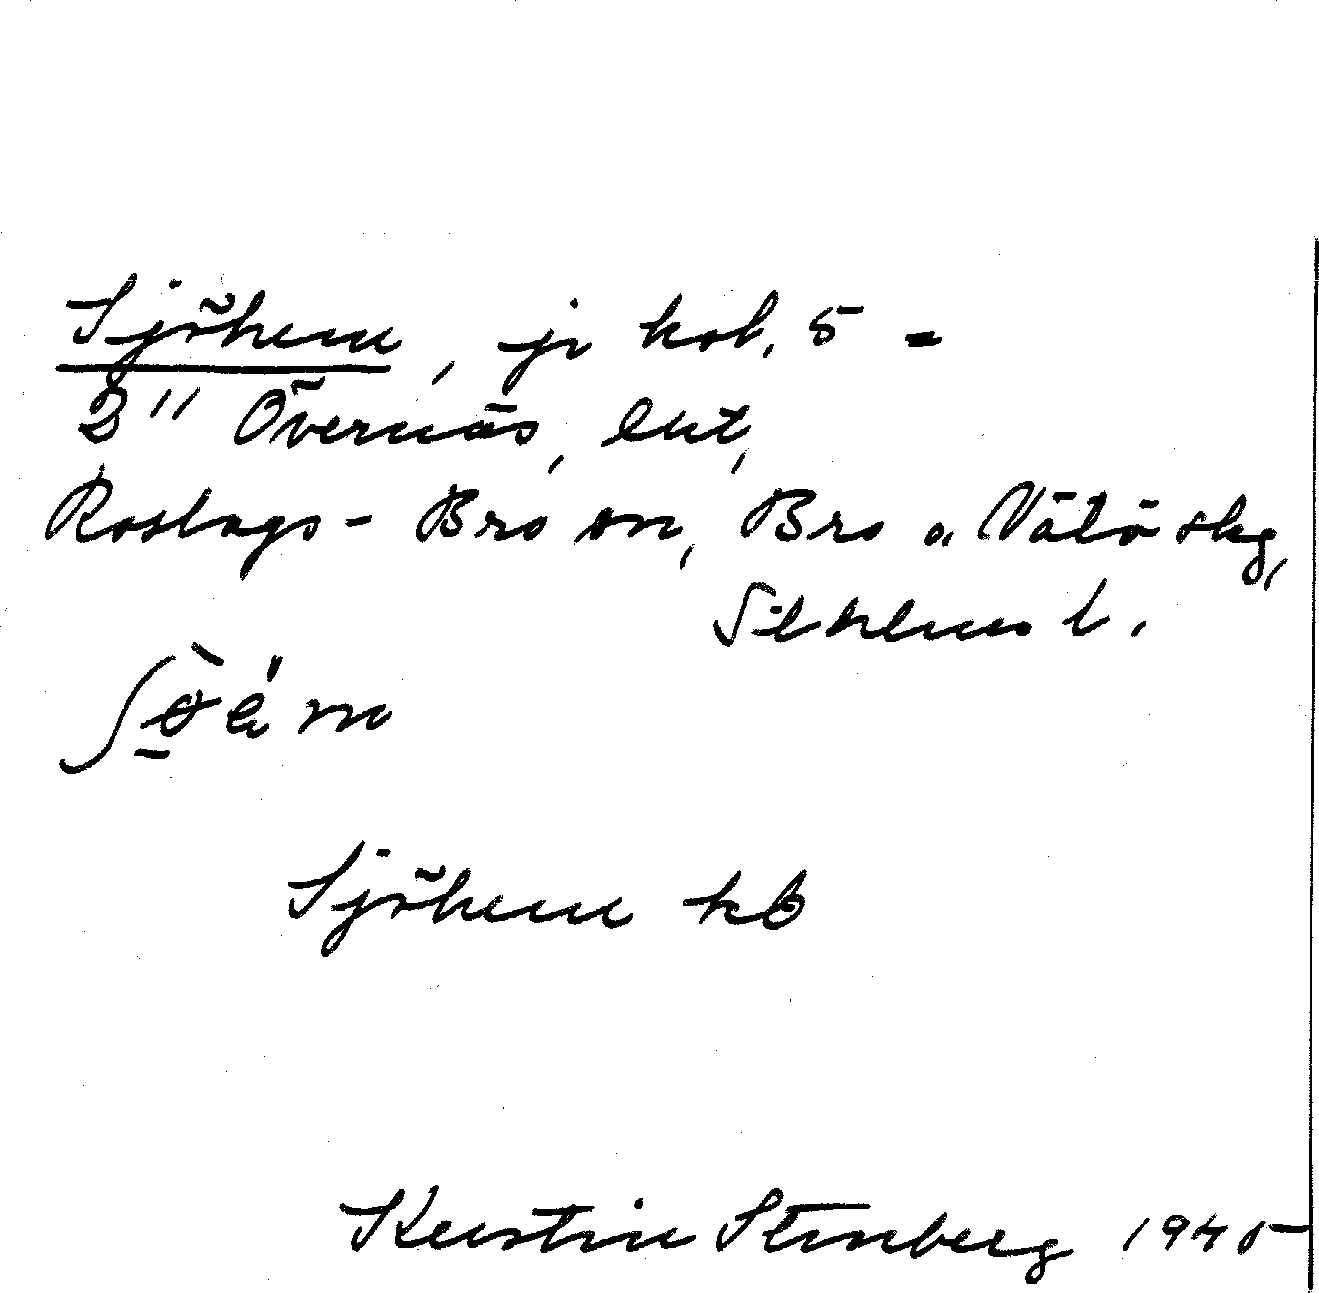 Sjöhem, jr kol. 5 =
2" Övernäs, ent,
Roslags-Bro sn, Bro o. Vätö skg,
Sthlms l.
Sjöhem kb
Kerstin Stenberg 1945